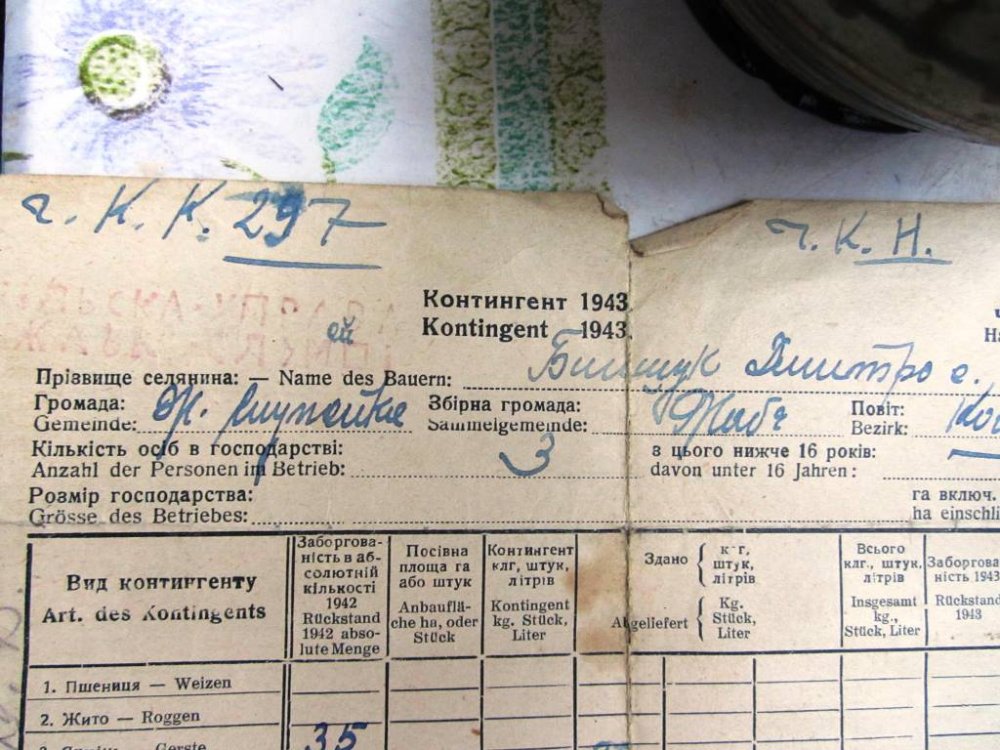 ч. К. К. 297
ч. К. Н.
Контингент 1943
Kontingent 1943
ей
Прізвище селянина: — Name des Bauern: Дмитро с.
Громада: Збірна громада: Жабє Повіт:
Gemeinde: Sammelgemeinde: Bezirk:
Кількість осіб в господарстві: 3 з цього нижче 16 років:
Anzahl der Personen im Betrieb: davon unter 16 Jahren:
Розмір господарства: га включ.
Grösse des Betriebes: ha einschli
Вид контингенту
Art. des Kontingents
Заборго-
ність в аб-
солютній
кількості
1942
Rückstand
1942 abso-
lute Menge
Посівна
площа га
або штук
Anbauflä-
che ha, oder
Stück
Контингент
клг, штук,
літрів
Kontingent
kg. Stück,
Liter
Здано
кг,
штук,
літрів
Abgeliefert
Kg.
Stück,
Liter
Всього
клг., штук,
літрів
Insgesamt
kg.,
Stück, Liter
Заборгова-
ність 1943
Rückstand
1943
1. Пшениця — Weizen
2. Жито — Roggen
35
Gerste